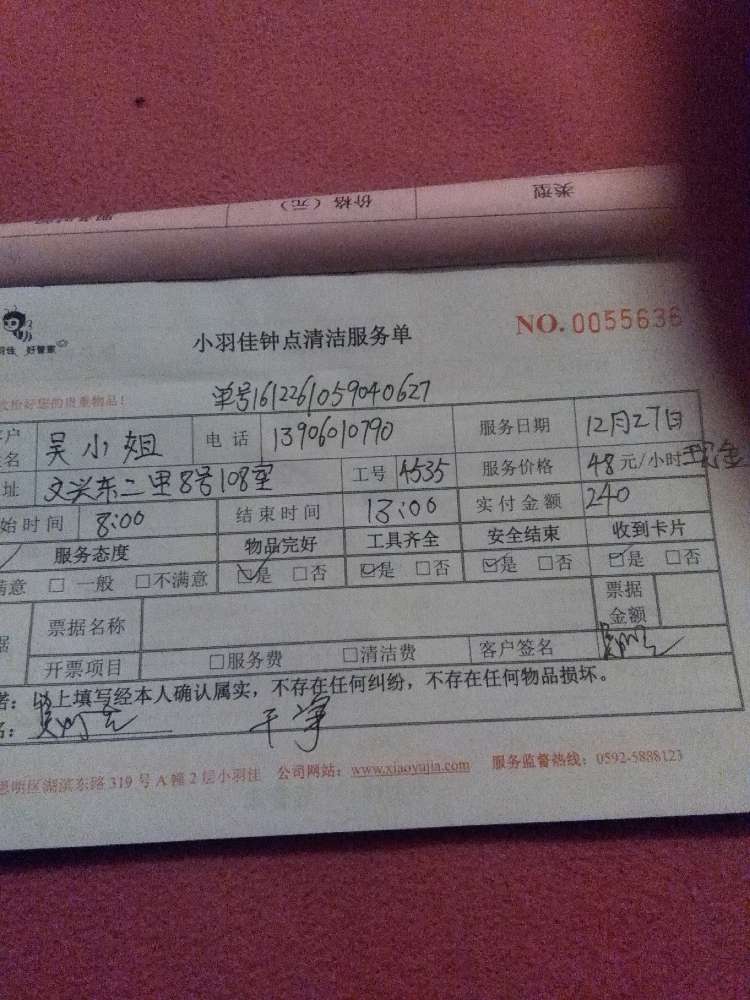 类型 价格（元）
NO. 0055636
小羽佳钟点清洁服务单
好管家
您的贵重物品！
单号1612261059040627
吴小姐 电话 13906010790 服务日期 12月27日
址 文兴东二里8号108室 工号 4535 服务价格 48元/小时 现金
始时间 8:00 结束时间 13:00 实付金额 240
服务态度 物品完好 工具齐全 安全结束 收到卡片
满意 □ 一般 □不满意 ☑是 □否 ☑是 □否 ☑是 □否 ☑是 □否
票据名称 票据金额
开票项目 □服务费 □清洁费 客户签名
以上填写经本人确认属实，不存在任何纠纷，不存在任何物品损坏。
干净
思明区湖滨东路319号A幢2层小羽佳 公司网站：www.xiaoyujia.com 服务监督热线：0592-5888123